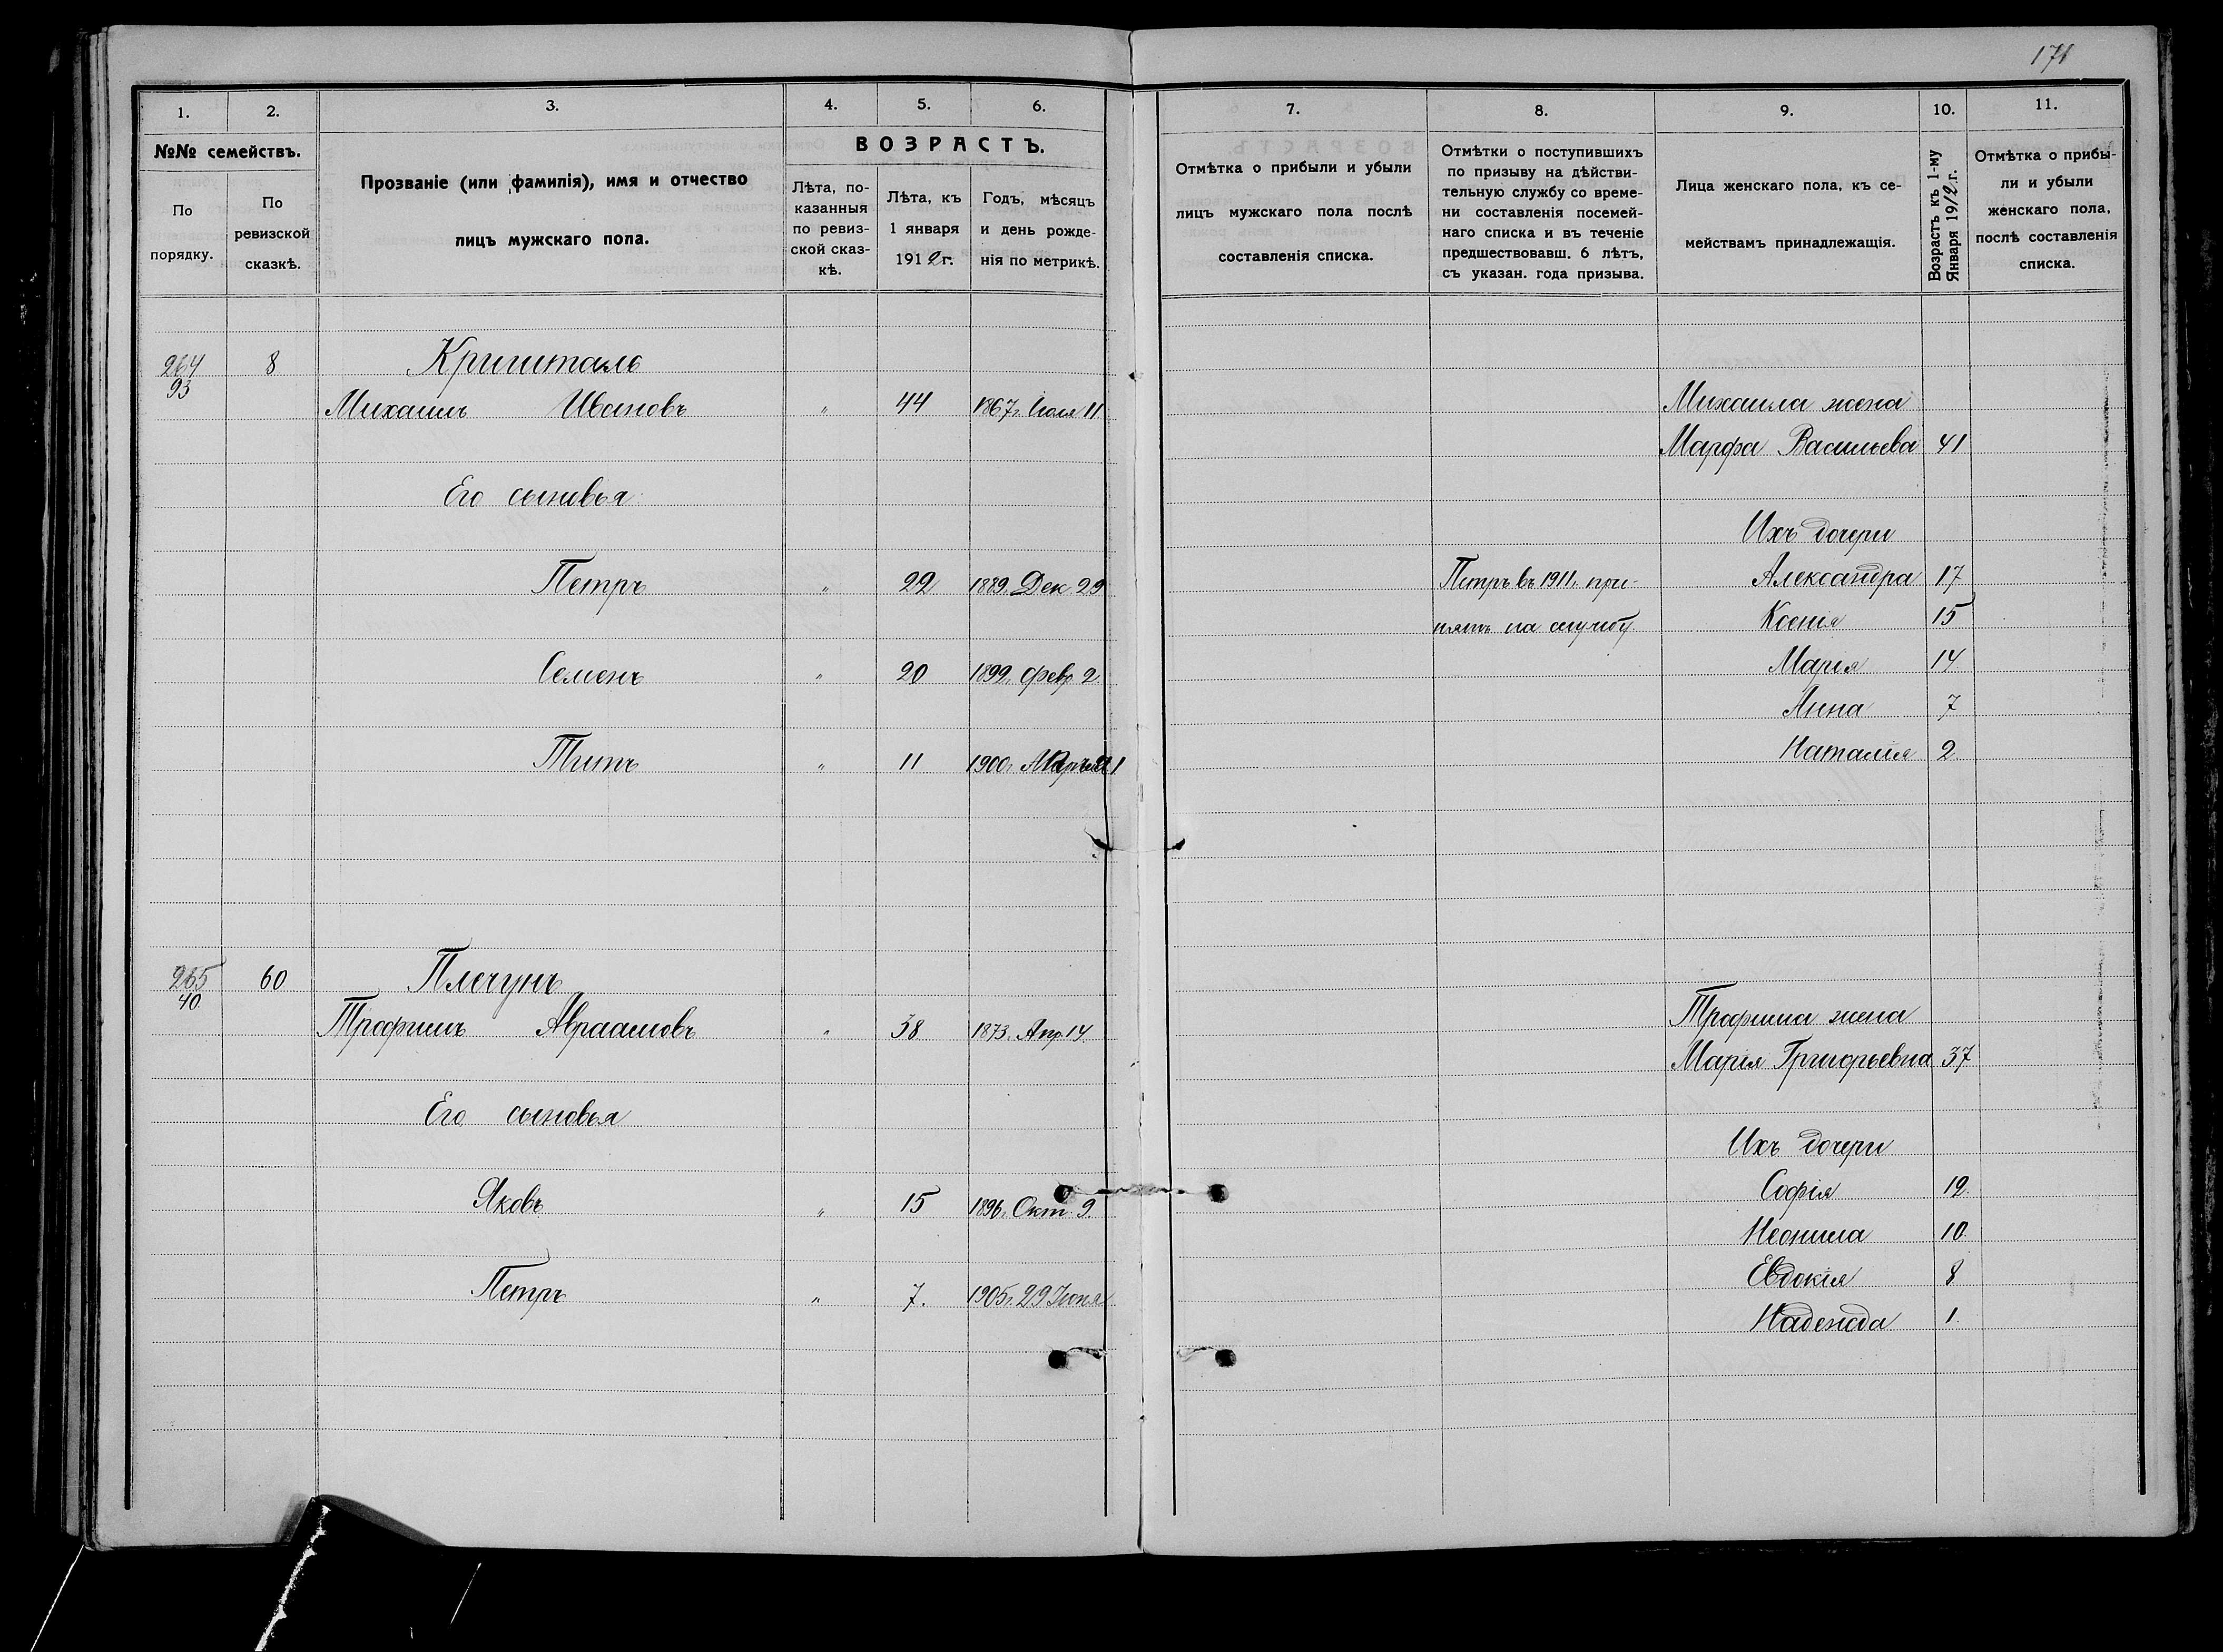 171
1. 2. 3. 4. 5. 6.
№№ семействъ.
По порядку.
По ревизской сказкѣ.
Прозваніе (или фамилія), имя и отчество
лицъ мужскаго пола.
ВОЗРАСТЪ.
Лѣта, по-
казанныя
по ревиз-
ской сказ-
кѣ.
Лѣта, къ
1 января
1912 г.
Годъ, мѣсяцъ
и день рожде-
нія по метрикѣ.
264 8 Кришталь
93
Михаилъ Ивановъ " 44 1867г. Іюля 11
Его сыновья
Петръ " 22 1889г. Дек 29
Семенъ " 20 1899. февр 2.
Титъ " 11 1900г.
265 60 Плечунъ
40
Трофимъ Авраамовъ " 38 1873. Апр 14.
Его сыновья
Яковъ " 15 1896. Окт. 9.
Петръ " 7. 1905г. 29 Іюня
7. 8. 9. 10. 11.
Отмѣтка о прибыли и убыли
лицъ мужскаго пола послѣ
составленія списка.
Отмѣтки о поступившихъ
по призыву на дѣйстви-
тельную службу со време-
ни составленія посемей-
наго списка и въ теченіе
предшествовавш. 6 лѣтъ,
съ указан. года призыва.
Лица женскаго пола, къ се-
мействамъ принадлежащія.
Возрастъ къ 1-му
Января 1912 г.
Отмѣтка о прибы-
ли и убыли
женскаго пола,
послѣ составленія
списка.
Михаила жена
Марфа Васильева 41
Ихъ дочери
Петръ въ 1911г. при- Александра 17
нятъ на службу Ксенія 15
Марія 14
Анна 7
Наталія 2
Трофима жена
Марія Григорьевна 37
Ихъ дочери
Софія 12
Неонила 10
Евдокія 8
Надежда 1.